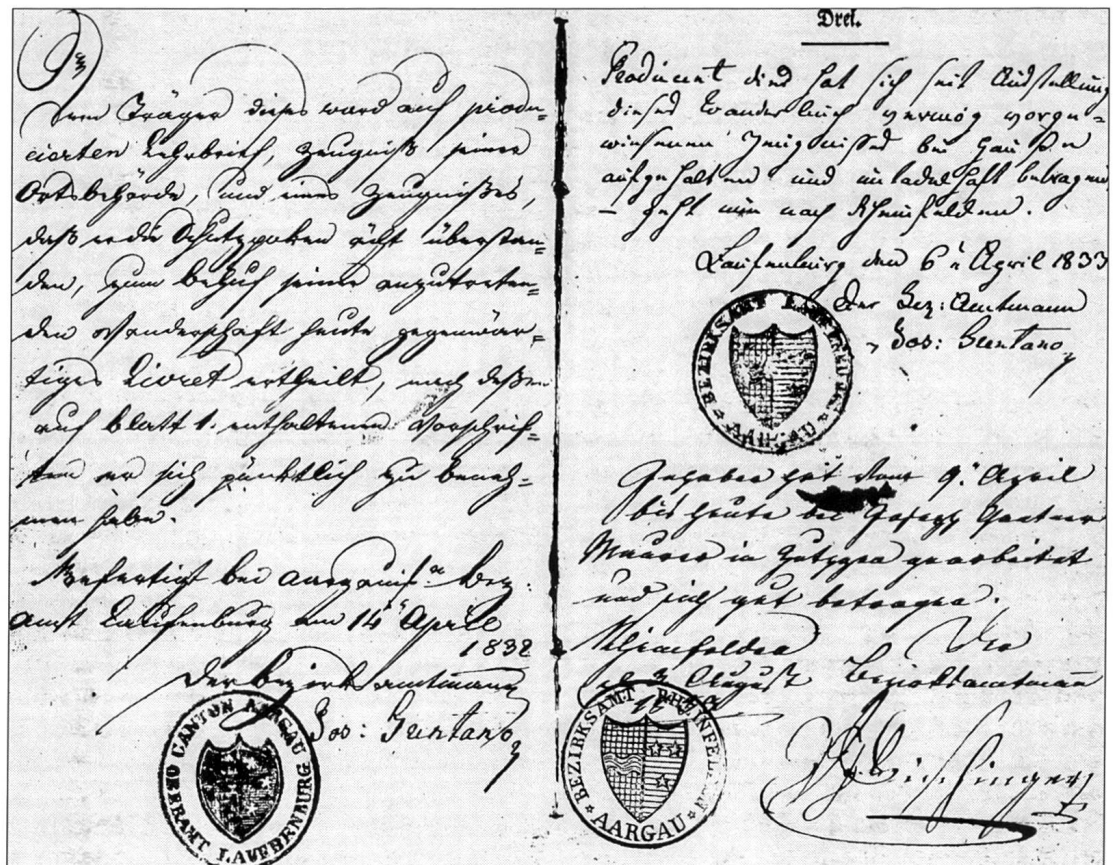 Dem Träger dieses ward auf produ=
cierten Lehrbrief, Zeugniß seiner
Ortsbehörde, und eines Zeugnißes,
daß er die Schutzpoken ächt überstan=
den, zum Behuf seiner anzutreten=
den Wanderschaft heute gegenwär=
tiges Livret ertheilt, nach deßen
auf Blatt 1. enthaltenen Vorschrif=
ten er sich pünktlich zu beneh=
men habe.
Gefertigt bei aargauisch. Bez.
Amt Laufenburg am 14 April
1832
Der Bezirksamtmann
Jos:
OBERAMT LAUFFENBURG CANTON AARGAU
Drei.
Producent dies hat sich seit Ausstellung
dieses Wanderbuch vermög vorge=
wiesenen Zeugnisses bei Hause
aufgehalten und untadelhaft betragen
– geht nun nach Rheinfelden.
Laufenburg den 6 April 1833
Der Bez: Amtmann
Jos:
BEZIRKSAMT LAUFFENBURG
AARGAU
Inhaber hat vom 9. April
bis heute bei Joseph
Maurer in gearbeitet
und sich gut betragen.
Rheinfelden Der
August Bezirksamtmann
BEZIRKSAMT RHEINFELDEN
AARGAU